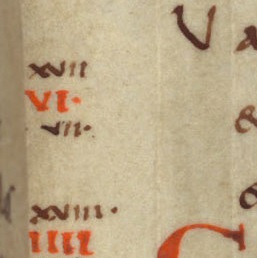 V a
xvii
VI·
vii·
&
xviii·
IIII